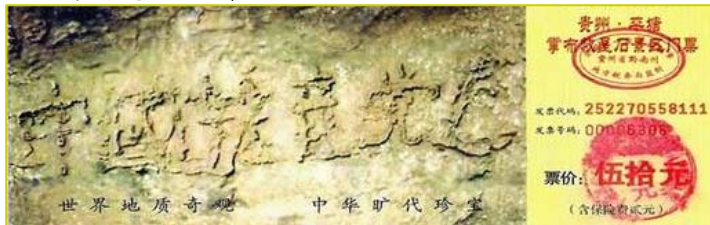 中國共产党亡
世界地质奇观 中华旷代珍宝
贵州·平塘
掌布救星石景区门票
贵州省黔南州
发票代码: 252270558111
发票号码: 00006306
票价: 伍拾元
(含保险费贰元)